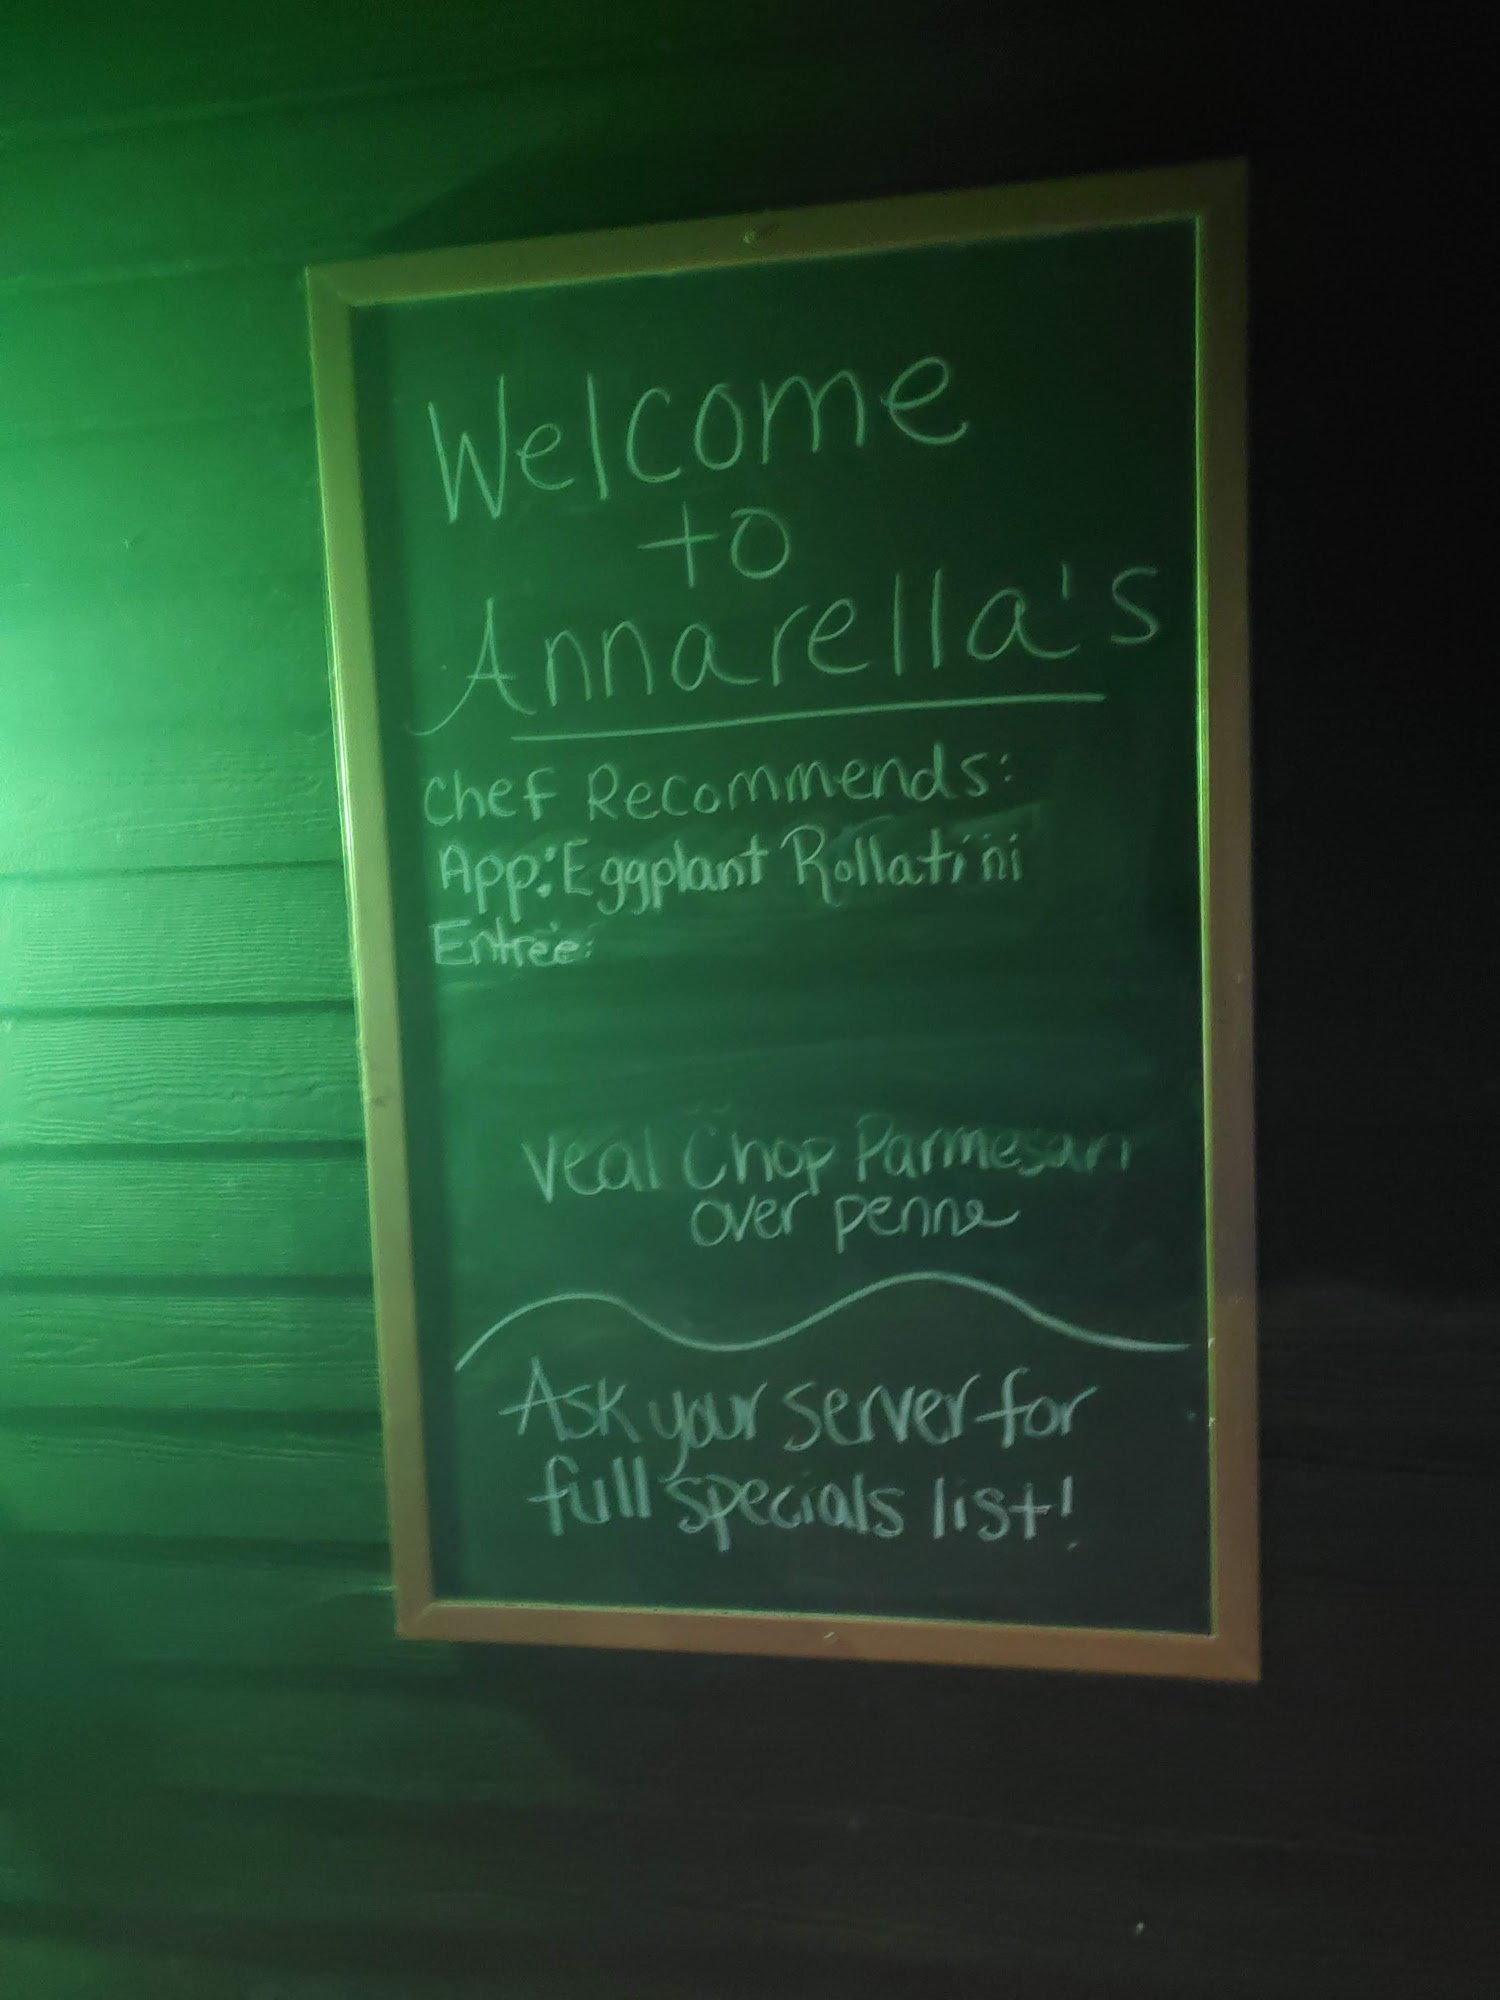 Welcome
to
Annarella's
Chef Recommends:
App: Eggplant Rollatini
Entrée:
Veal Chop Parmesan
over penne
Ask your server for
full specials list!